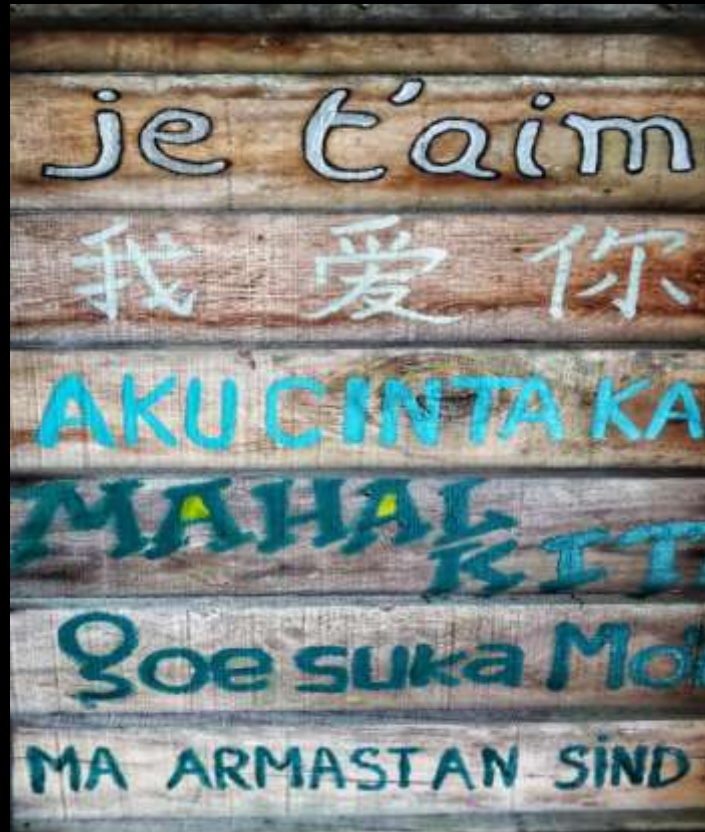 je t'aim
我爱你
AKU CINTA KA
MAHAL KITA
goe suka Mo
MA ARMASTAN SIND